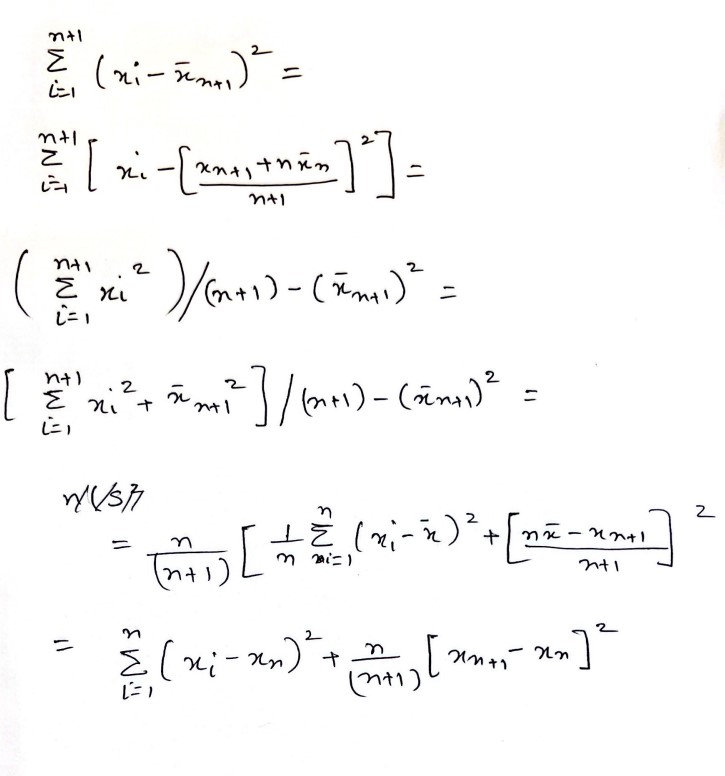 \sum_{i=1}^{n+1} (x_i - \bar{x}_{n+1})^2 =
\sum_{i=1}^{n+1} [ x_i - [ \frac{x_{n+1} + n\bar{x}_n}{n+1} ]^2 ] =
( \sum_{i=1}^{n+1} x_i^2 ) / (n+1) - (\bar{x}_{n+1})^2 =
[ \sum_{i=1}^{n+1} x_i^2 + \bar{x}_{n+1}^2 ] / (n+1) - (\bar{x}_{n+1})^2 =
= \frac{n}{(n+1)} [ \frac{1}{n} \sum_{i=1}^{n} (x_i - \bar{x})^2 + [ \frac{n\bar{x} - x_{n+1}}{n+1} ]^2
= \sum_{i=1}^{n} (x_i - x_n)^2 + \frac{n}{(n+1)} [ x_{n+1} - x_n ]^2